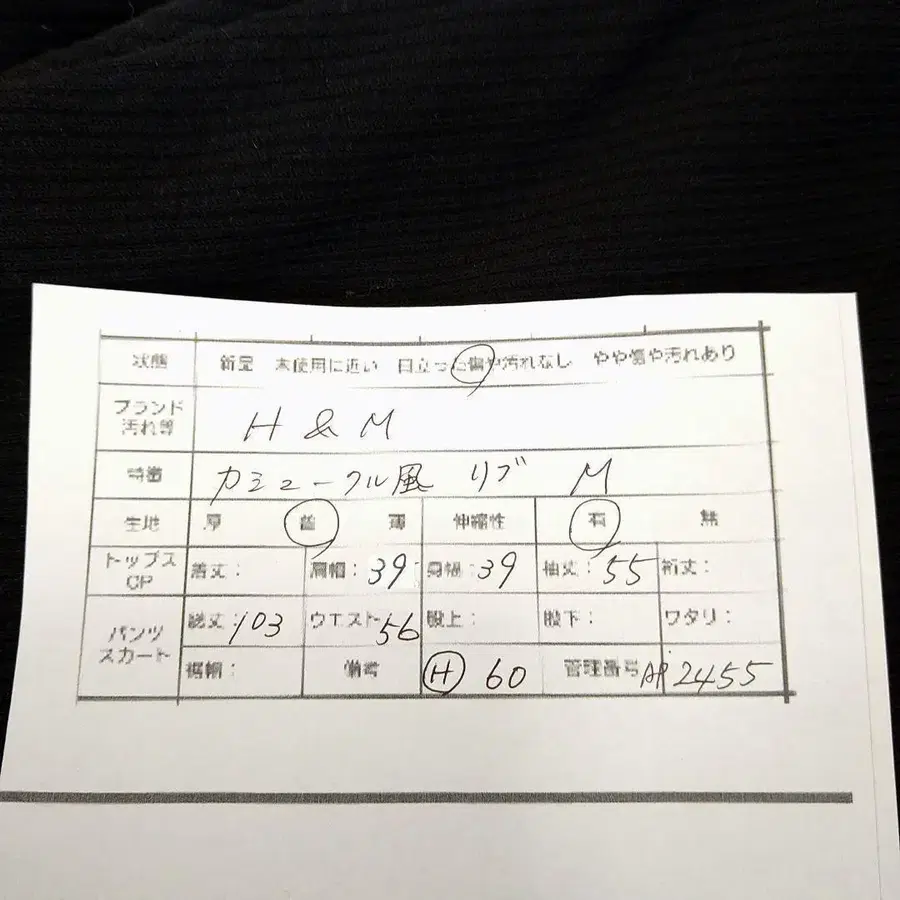 状態 新品 未使用に近い 目立った傷や汚れなし やや傷や汚れあり
ブランド
汚れ等 H & M
特徴 カシュクール風 リブ M
生地 厚 普 薄 伸縮性 有 無
トップス
OP 着丈: 肩幅: 39 身幅: 39 袖丈: 55 裄丈:
パンツ
スカート 総丈: 103 ウエスト 56 股上: 股下: ワタリ:
裾幅: 備考 H 60 管理番号 AP 2455